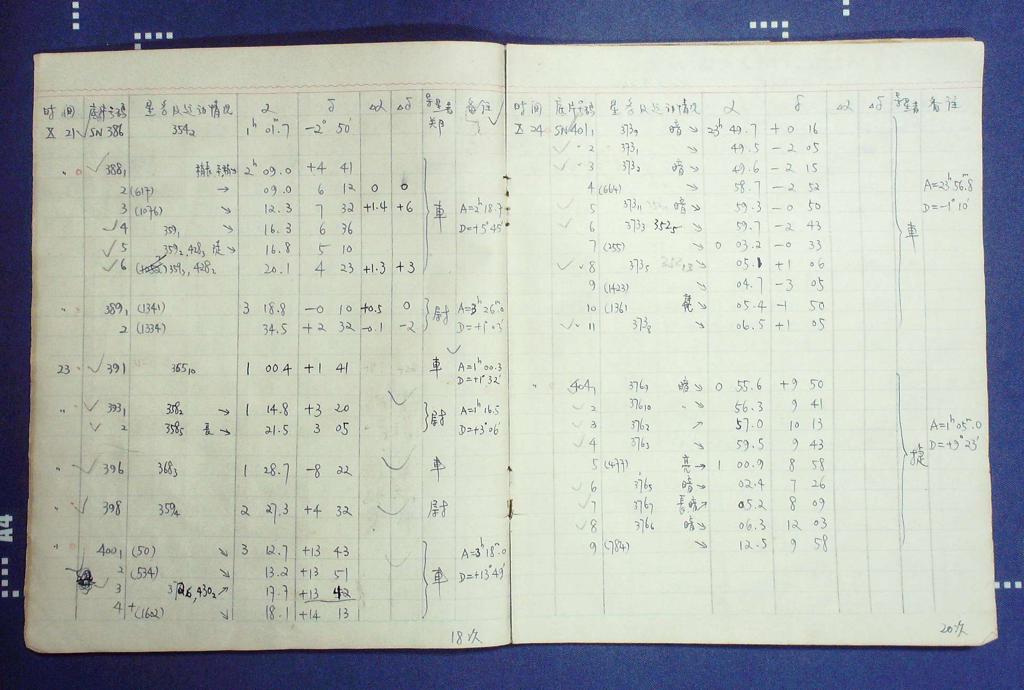 时间 底片号码 星名及运动情况 α δ Δα Δδ 导星者 备注
X 21 SN 386 354₂ 1ʰ 01.ᵐ7 −2° 50′ 郑
" 388₁ 2ʰ 09.0 +4 41
2 (617) → 09.0 6 12 0 0
3 (1076) ↘ 12.3 7 32 +1.4 +6 車 A=2ʰ18.7
4 359₁ ↘ 16.3 6 36 D=+5°45′
5 359₂, 428₃ → 16.8 5 10
6 359₃, 428₂ 20.1 4 23 +1.3 +3
" 389₁ (1341) 3 18.8 −0 10 +0.5 0 尉 A=3ʰ26.ᵐ0
2 (1334) 34.5 +2 32 −0.1 −2 D=+1°03′
23 391 365₁₀ 1 00.4 +1 41 車 A=1ʰ00.3
D=+1°32′
" 393₁ 358₂ → 1 14.8 +3 20 尉 A=1ʰ16.5
2 358₅ 長 → 21.5 3 05 D=+3°06′
" 396 368₃ 1 28.7 −8 22 車
" 398 359₄ 2 27.3 +4 32 尉
" 400₁ (50) ↘ 3 12.7 +13 43 車 A=3ʰ18.ᵐ0
2 (534) ↘ 13.2 +13 51 D=+13°49′
3 430₂ ↗ 17.7 +13 42
4 + (1602) ↘ 18.1 +14 13
18次
时间 底片号码 星名及运动情况 α δ Δα Δδ 导星者 备注
X 24 SN 401₁ 373₉ 暗 ↘ 23ʰ 49.7 +0 16
2 373₁ 49.5 −2 05
3 373₂ 暗 ↘ 49.6 −2 15
4 (664) → 58.7 −2 52 A=23ʰ56.ᵐ8
5 373₁₁ 暗 ↘ 59.3 −0 50 D=−1°10′
6 373₃ 352₅ ↘ 59.7 −2 43 車
7 (255) ↘ 0 03.2 −0 33
8 373₅ ↘ 05.1 +1 06
9 (1423) 04.7 −3 05
10 (1361) 亮 ↘ 05.4 −1 50
11 373₈ ↘ 06.5 +1 05
" 404₁ 376₉ 暗 ↘ 0 55.6 +9 50
2 376₁₀ " ↘ 56.3 9 41
3 376₂ ↗ 57.0 10 13 A=1ʰ05.ᵐ0
4 376₃ ↘ 59.5 9 43 D=+9°23′
5 (477) 亮 → 1 00.9 8 58
6 376₅ 暗 ↘ 02.4 7 26
7 376₇ 長暗 ↗ 05.2 8 09
8 376₆ 暗 ↘ 06.3 12 03
9 (784) ↘ 12.5 9 58
20次
A4